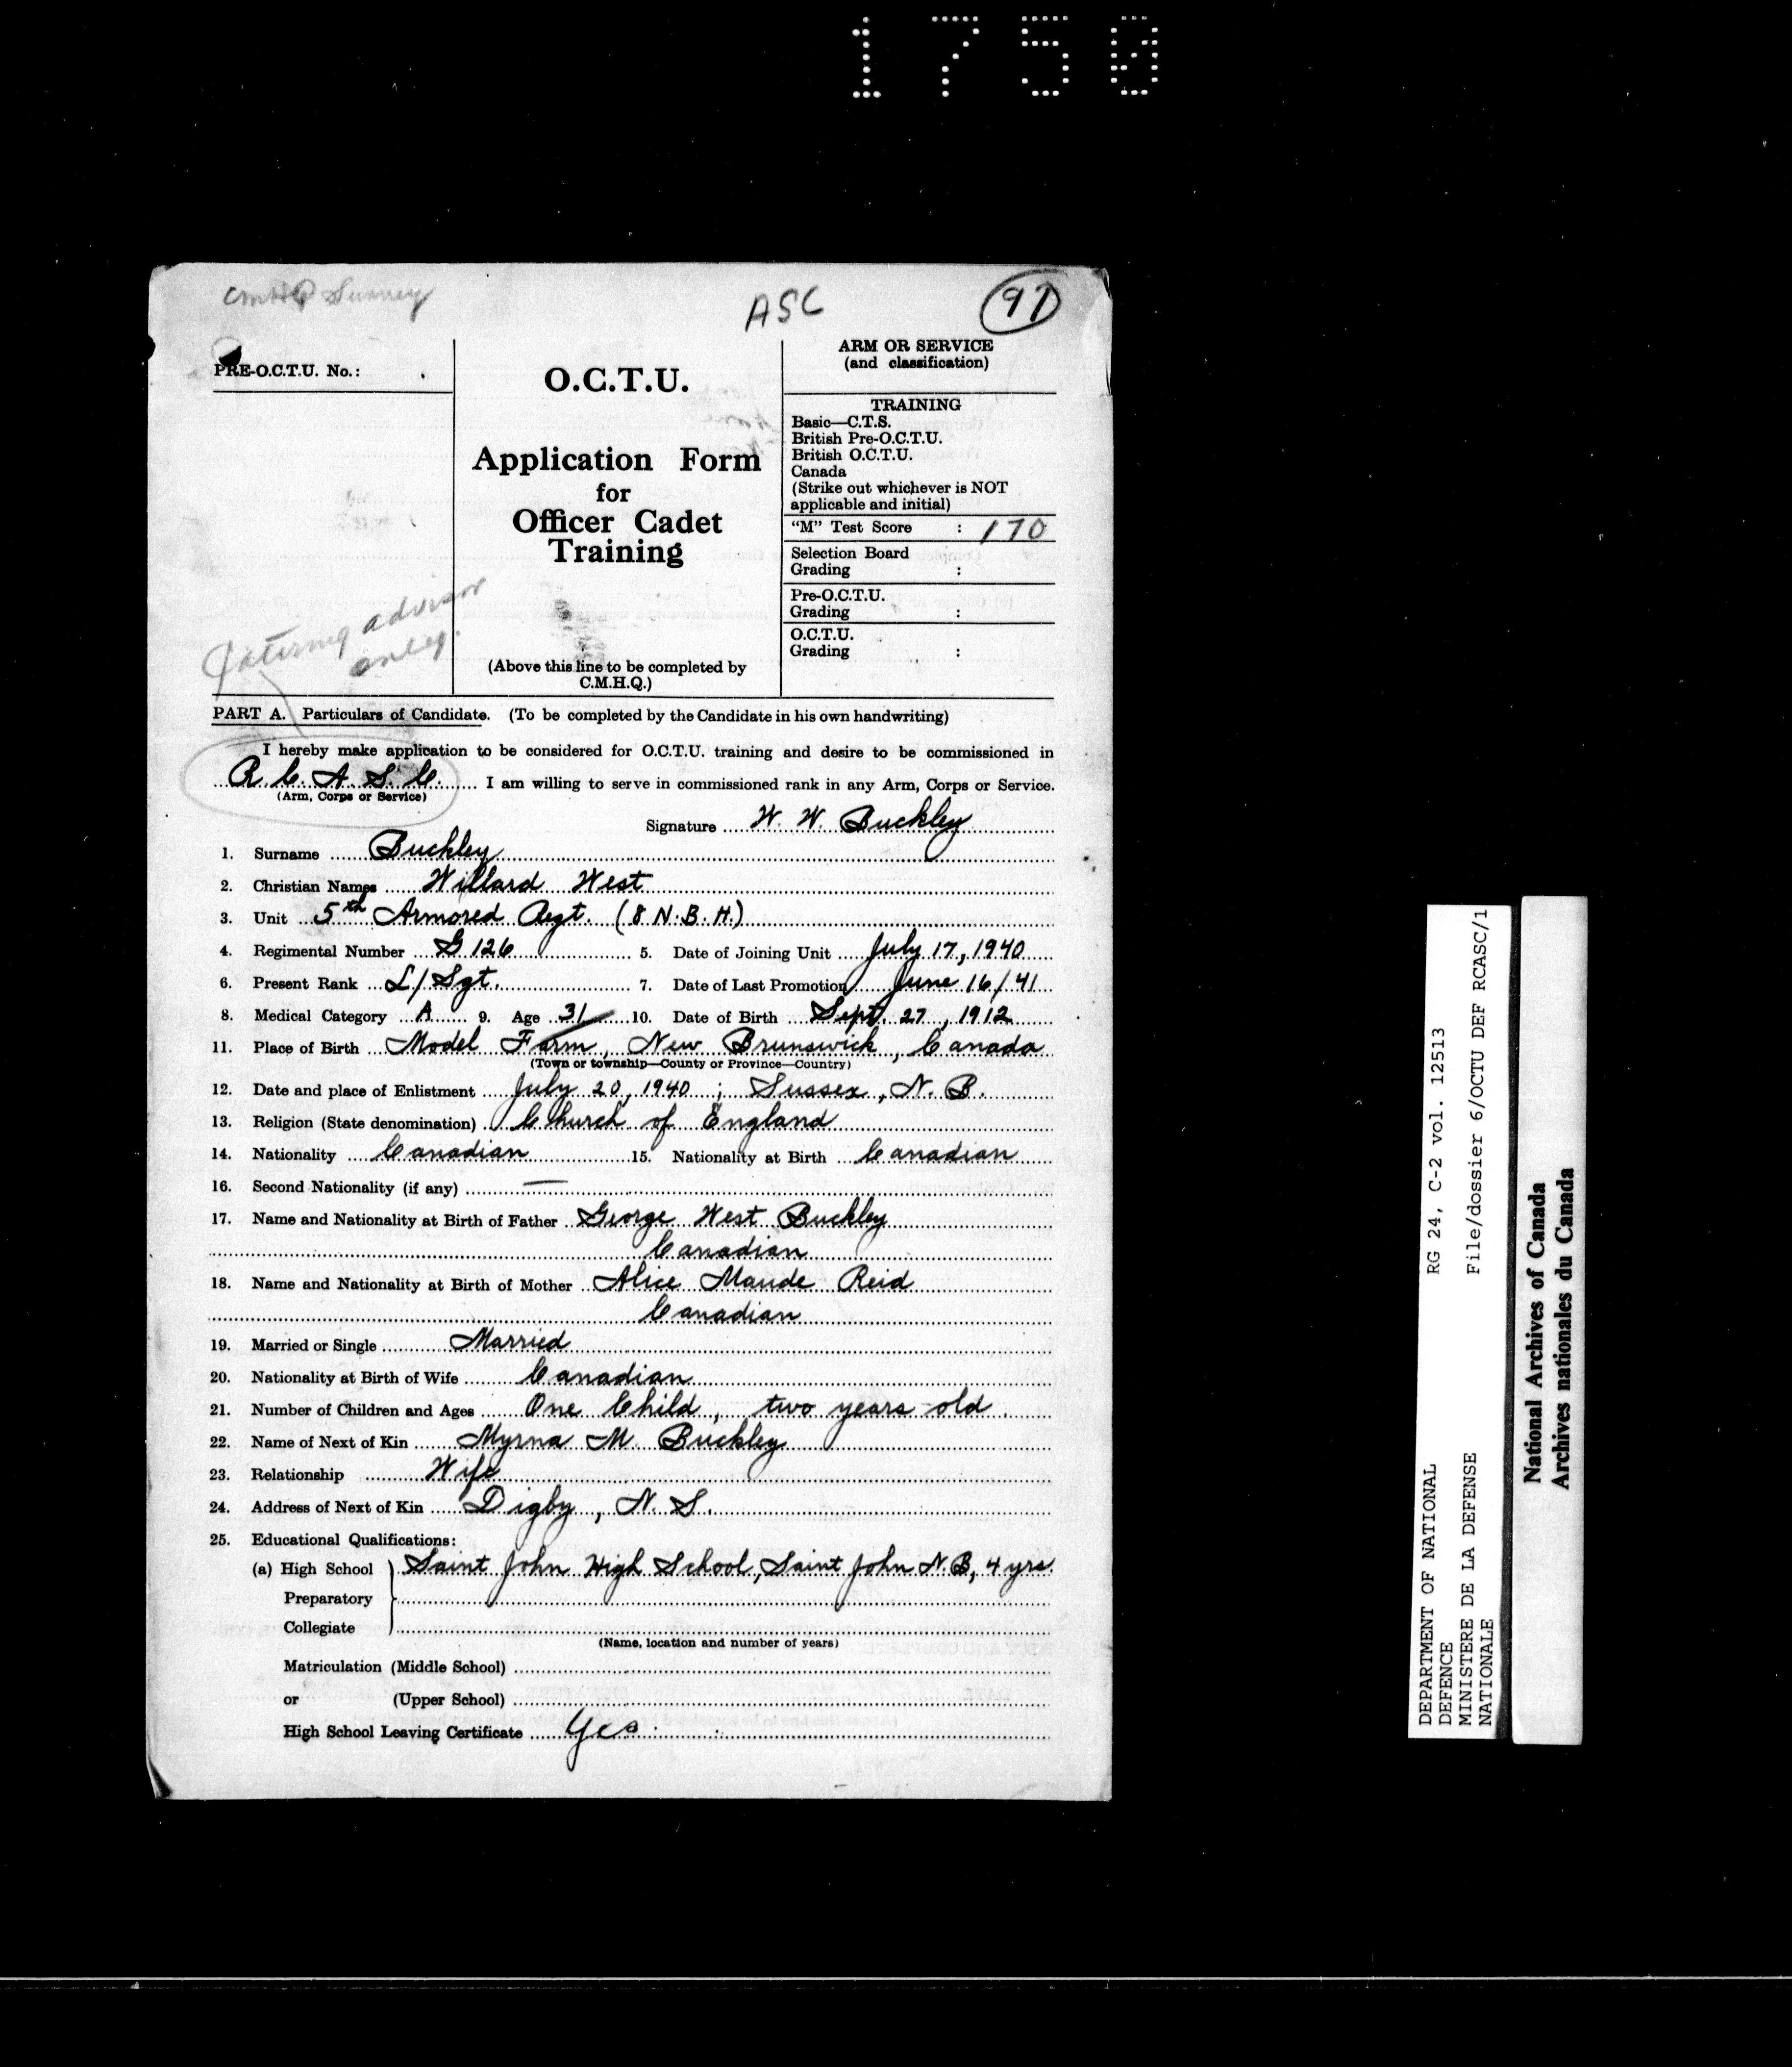 1750
CMHQ Survey
ASC
97
PRE-O.C.T.U. No.:
O.C.T.U.
Application Form
for
Officer Cadet
Training
(Above this line to be completed by
C.M.H.Q.)
ARM OR SERVICE
(and classification)
TRAINING
Basic—C.T.S.
British Pre-O.C.T.U.
British O.C.T.U.
Canada
(Strike out whichever is NOT
applicable and initial)
"M" Test Score : 170
Selection Board
Grading :
Pre-O.C.T.U.
Grading :
O.C.T.U.
Grading :
Catering advisor
only.
PART A. Particulars of Candidate. (To be completed by the Candidate in his own handwriting)
I hereby make application to be considered for O.C.T.U. training and desire to be commissioned in
R.C.A.S.C. I am willing to serve in commissioned rank in any Arm, Corps or Service.
(Arm, Corps or Service)
Signature W. W. Buckley
1. Surname Buckley
2. Christian Names Willard West
3. Unit 5th Armored Regt. (8 N.B.H.)
4. Regimental Number G 126 5. Date of Joining Unit July 17, 1940
6. Present Rank L/Sgt. 7. Date of Last Promotion June 16/41
8. Medical Category A 9. Age 31 10. Date of Birth Sept. 27, 1912
11. Place of Birth Model Farm, New Brunswick, Canada
(Town or township—County or Province—Country)
12. Date and place of Enlistment July 20, 1940 ; Sussex, N. B.
13. Religion (State denomination) Church of England
14. Nationality Canadian 15. Nationality at Birth Canadian
16. Second Nationality (if any) —
17. Name and Nationality at Birth of Father George West Buckley
Canadian
18. Name and Nationality at Birth of Mother Alice Maude Reid
Canadian
19. Married or Single Married
20. Nationality at Birth of Wife Canadian
21. Number of Children and Ages One Child, two years old.
22. Name of Next of Kin Myrna M. Buckley
23. Relationship Wife
24. Address of Next of Kin Digby, N. S.
25. Educational Qualifications:
(a) High School Saint John High School, Saint John N.B, 4 yrs.
Preparatory
Collegiate
(Name, location and number of years)
Matriculation (Middle School)
or (Upper School)
High School Leaving Certificate Yes
DEPARTMENT OF NATIONAL
DEFENCE
MINISTERE DE LA DEFENSE
NATIONALE
RG 24, C-2 vol. 12513
File/dossier 6/OCTU DEF RCASC/1
National Archives of Canada
Archives nationales du Canada